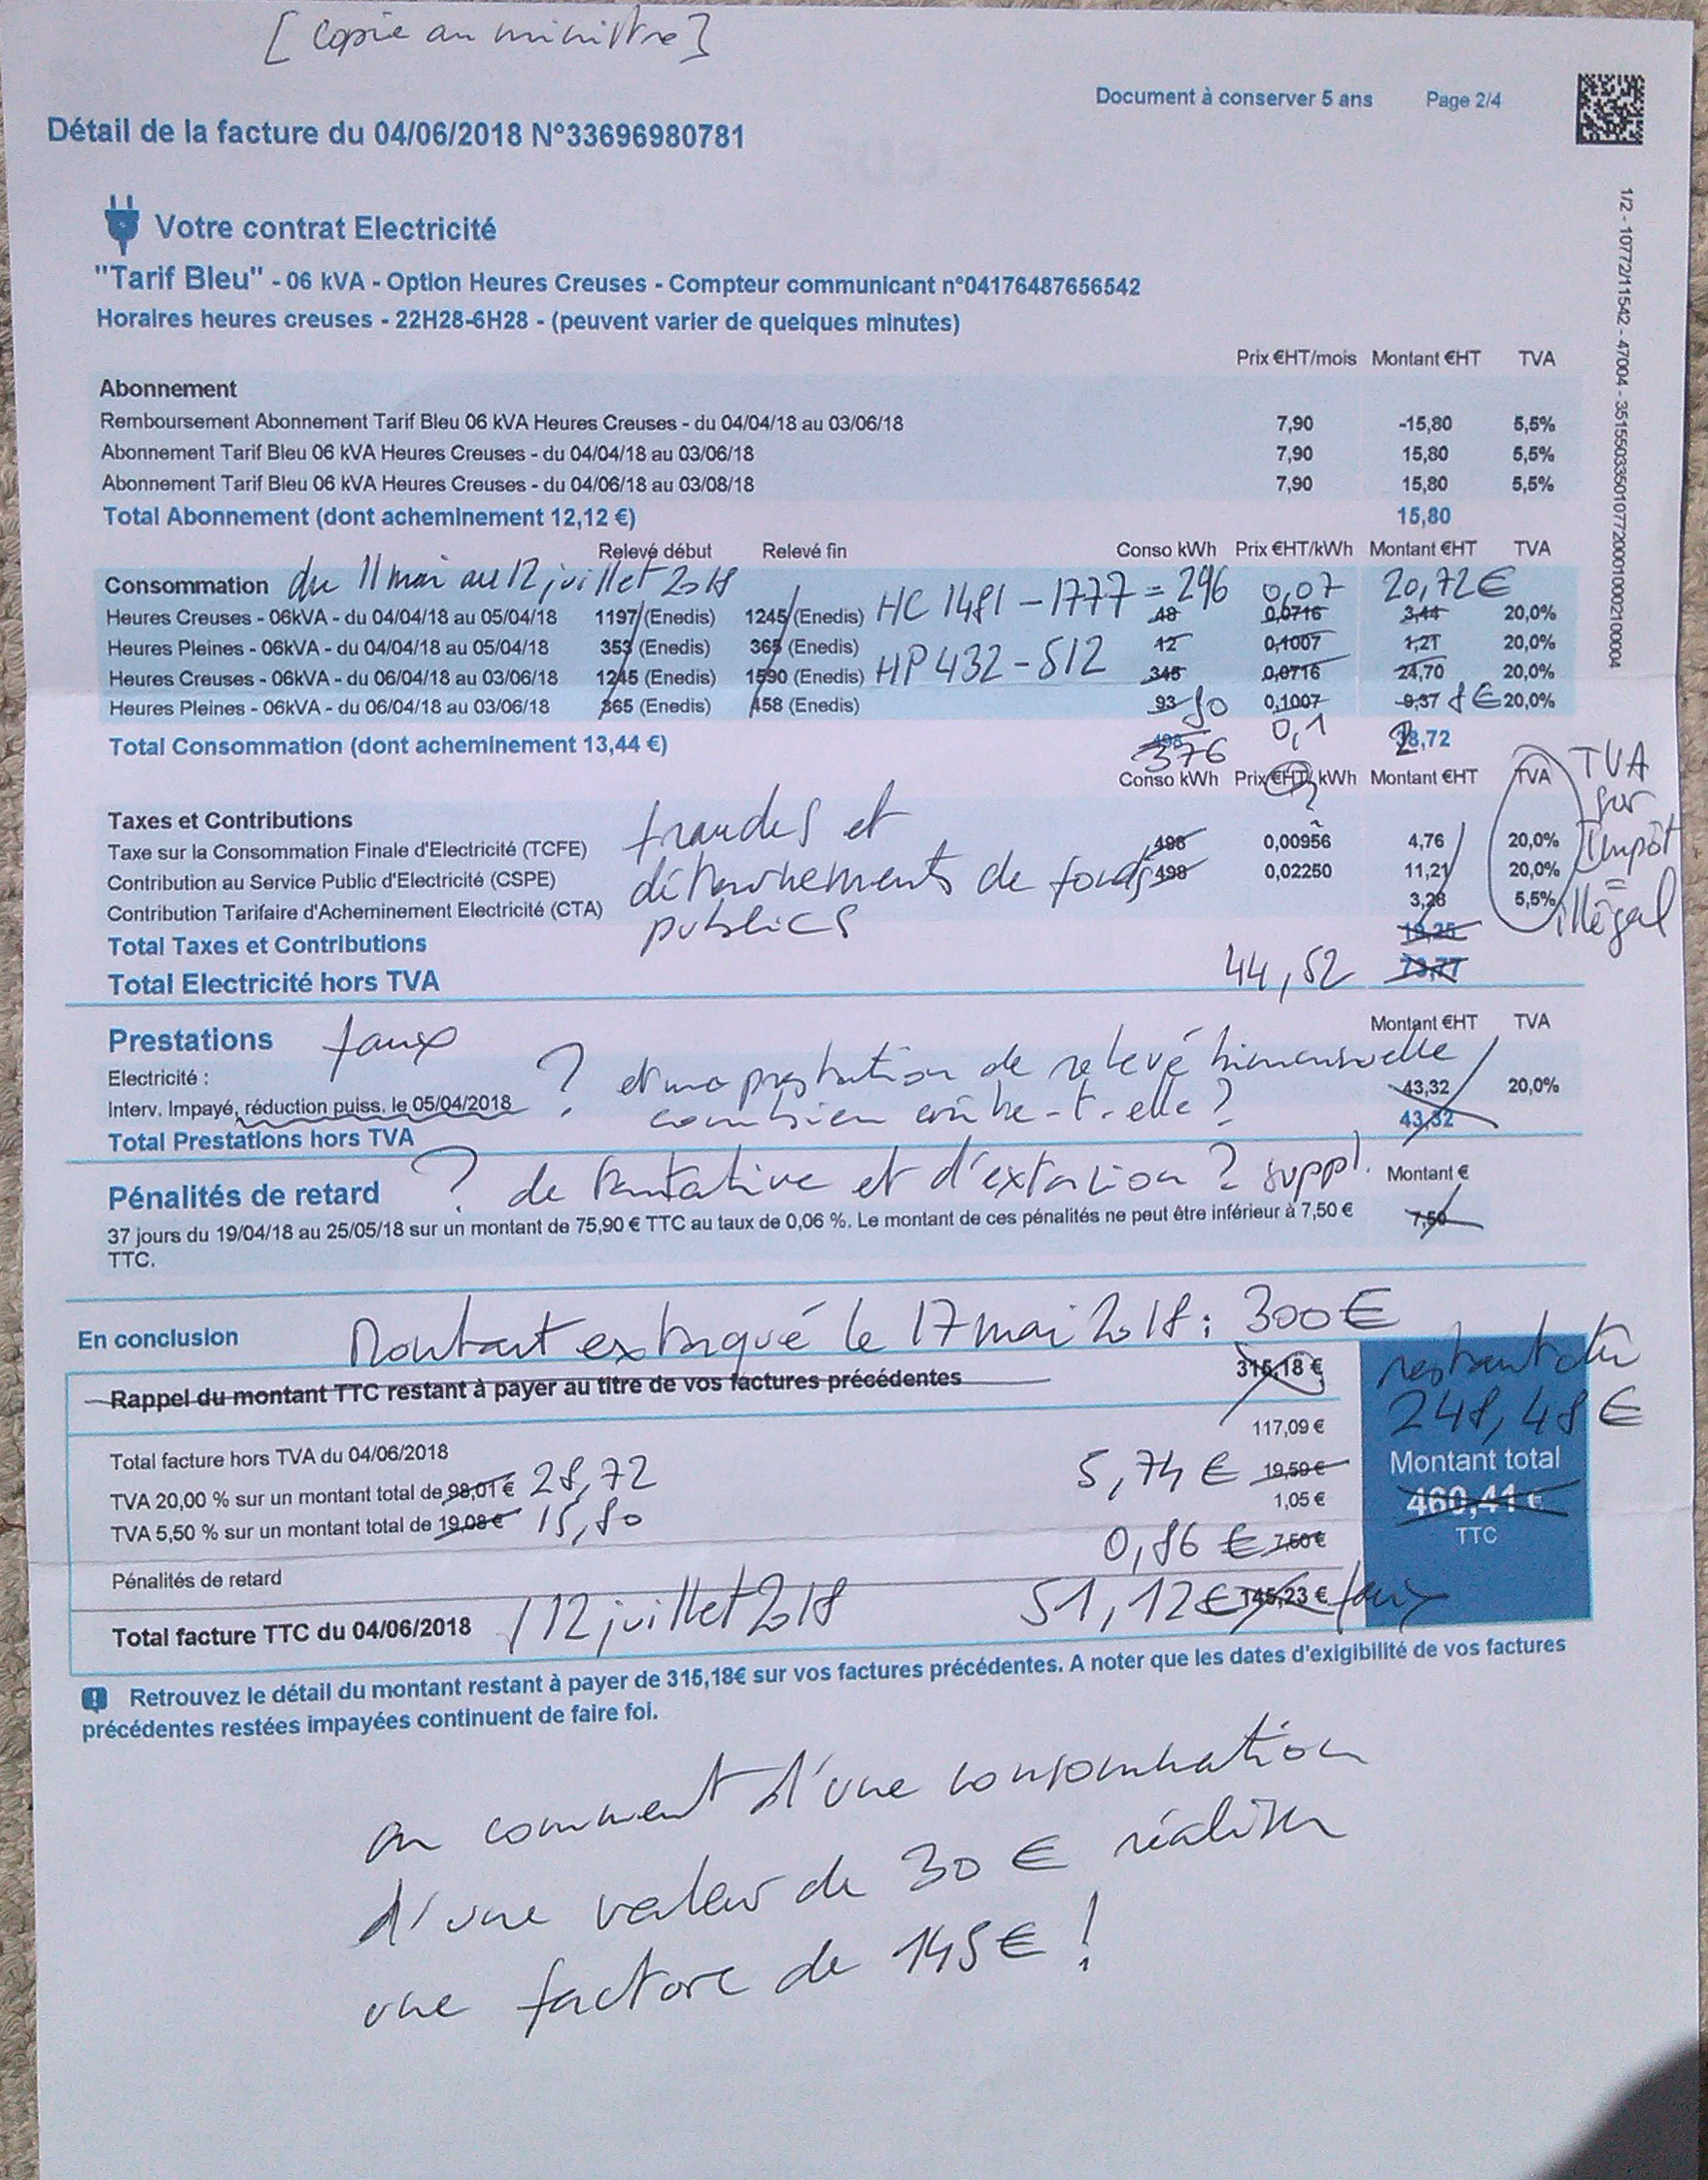 [copie au ministre]
Document à conserver 5 ans Page 2/4
Détail de la facture du 04/06/2018 N°33696980781
1/2 - 10772/11542 - 47004 -
Votre contrat Electricité
"Tarif Bleu" - 06 kVA - Option Heures Creuses - Compteur communicant n°04176487656542
Horaires heures creuses - 22H28-6H28 - (peuvent varier de quelques minutes)
Prix €HT/mois Montant €HT TVA
Abonnement
Remboursement Abonnement Tarif Bleu 06 kVA Heures Creuses - du 04/04/18 au 03/06/18 7,90 -15,80 5,5%
Abonnement Tarif Bleu 06 kVA Heures Creuses - du 04/04/18 au 03/06/18 7,90 15,80 5,5%
Abonnement Tarif Bleu 06 kVA Heures Creuses - du 04/06/18 au 03/08/18 7,90 15,80 5,5%
Total Abonnement (dont acheminement 12,12 €) 15,80
Relevé début Relevé fin Conso kWh Prix €HT/kWh Montant €HT TVA
Consommation du 11 mai au 12 juillet 2018 HC 1481 - 1777 = 296 0,07 20,72 €
Heures Creuses - 06kVA - du 04/04/18 au 05/04/18 1197 (Enedis) 1245 (Enedis) 48 0,0716 3,44 20,0%
Heures Pleines - 06kVA - du 04/04/18 au 05/04/18 353 (Enedis) 365 (Enedis) 12 0,1007 1,21 20,0%
HP 432 - 512
Heures Creuses - 06kVA - du 06/04/18 au 03/06/18 1245 (Enedis) 1590 (Enedis) 345 0,0716 24,70 20,0%
Heures Pleines - 06kVA - du 06/04/18 au 03/06/18 365 (Enedis) 458 (Enedis) 93 80 0,1007 9,37 8 € 20,0%
0,1
Total Consommation (dont acheminement 13,44 €) 498 2 38,72
376
Conso kWh Prix €HT/kWh Montant €HT TVA
?
TVA sur Impôt = illégal
Taxes et Contributions
Taxe sur la Consommation Finale d'Electricité (TCFE) 498 0,00956 4,76 20,0%
Contribution au Service Public d'Electricité (CSPE) 498 0,02250 11,21 20,0%
Contribution Tarifaire d'Acheminement Electricité (CTA) 3,28 5,5%
fraudes et
détournements de fonds
publics
Total Taxes et Contributions 19,25
Total Electricité hors TVA 44,52 73,77
Montant €HT TVA
Prestations faux
Electricité :
? et ma prestation de relevé bimensuelle
Interv. Impayé, réduction puiss. le 05/04/2018 43,32 20,0%
combien coûte-t-elle ?
Total Prestations hors TVA 43,32
Pénalités de retard ? de tentative et d'extorsion ? suppl. Montant €
37 jours du 19/04/18 au 25/05/18 sur un montant de 75,90 € TTC au taux de 0,06 %. Le montant de ces pénalités ne peut être inférieur à 7,50 € 7,50
TTC.
En conclusion Montant extorqué le 17 mai 2018 : 300 €
Rappel du montant TTC restant à payer au titre de vos factures précédentes 315,18 €
restant dû
248,48 €
Total facture hors TVA du 04/06/2018 117,09 €
TVA 20,00 % sur un montant total de 98,01 € 28,72 5,74 € 19,59 €
TVA 5,50 % sur un montant total de 19,08 € 15,80 1,05 €
0,86 €
Pénalités de retard 7,50 €
Montant total
460,41 €
TTC
Total facture TTC du 04/06/2018 / 12 juillet 2018 51,12 € 145,23 € faux
Retrouvez le détail du montant restant à payer de 315,18€ sur vos factures précédentes. A noter que les dates d'exigibilité de vos factures
précédentes restées impayées continuent de faire foi.
ou comment d'une consommation
d'une valeur de 30 € réaliser
une facture de 145 € !